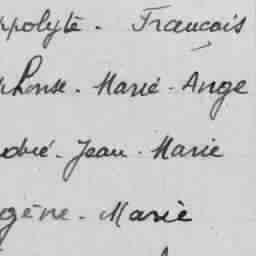 ppolyte - Francois
phonse - Marie - Ange
ndré - Jean - Marie
gène - Marie